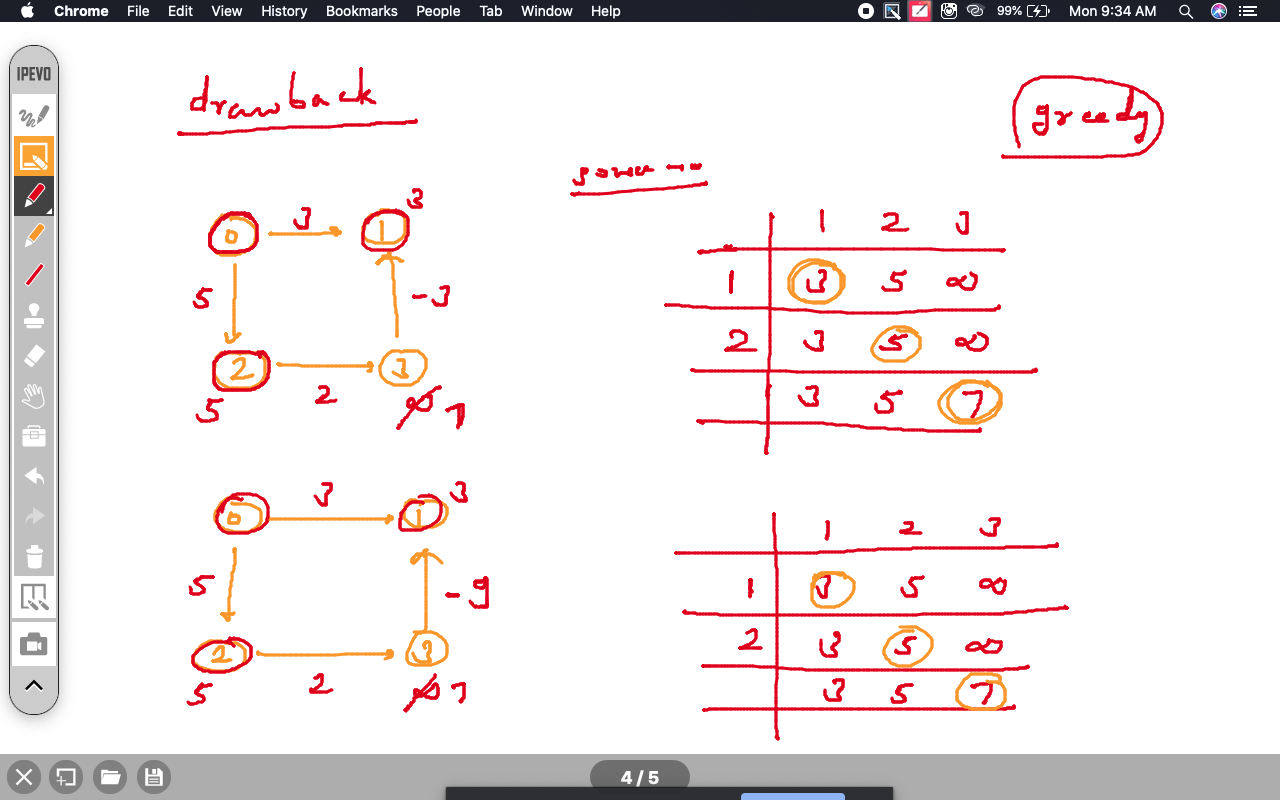 Chrome File Edit View History Bookmarks People Tab Window Help 99% Mon 9:34 AM
IPEVO
drawback
greedy
0 3 1 3
5 -3
2 3
5 2 ∞ 7
1 2 3
1 3 5 ∞
2 3 5 ∞
3 5 7
0 3 1 3
5 -9
2 3
5 2 ∞ 7
1 2 3
1 3 5 ∞
2 3 5 ∞
3 5 7
4 / 5